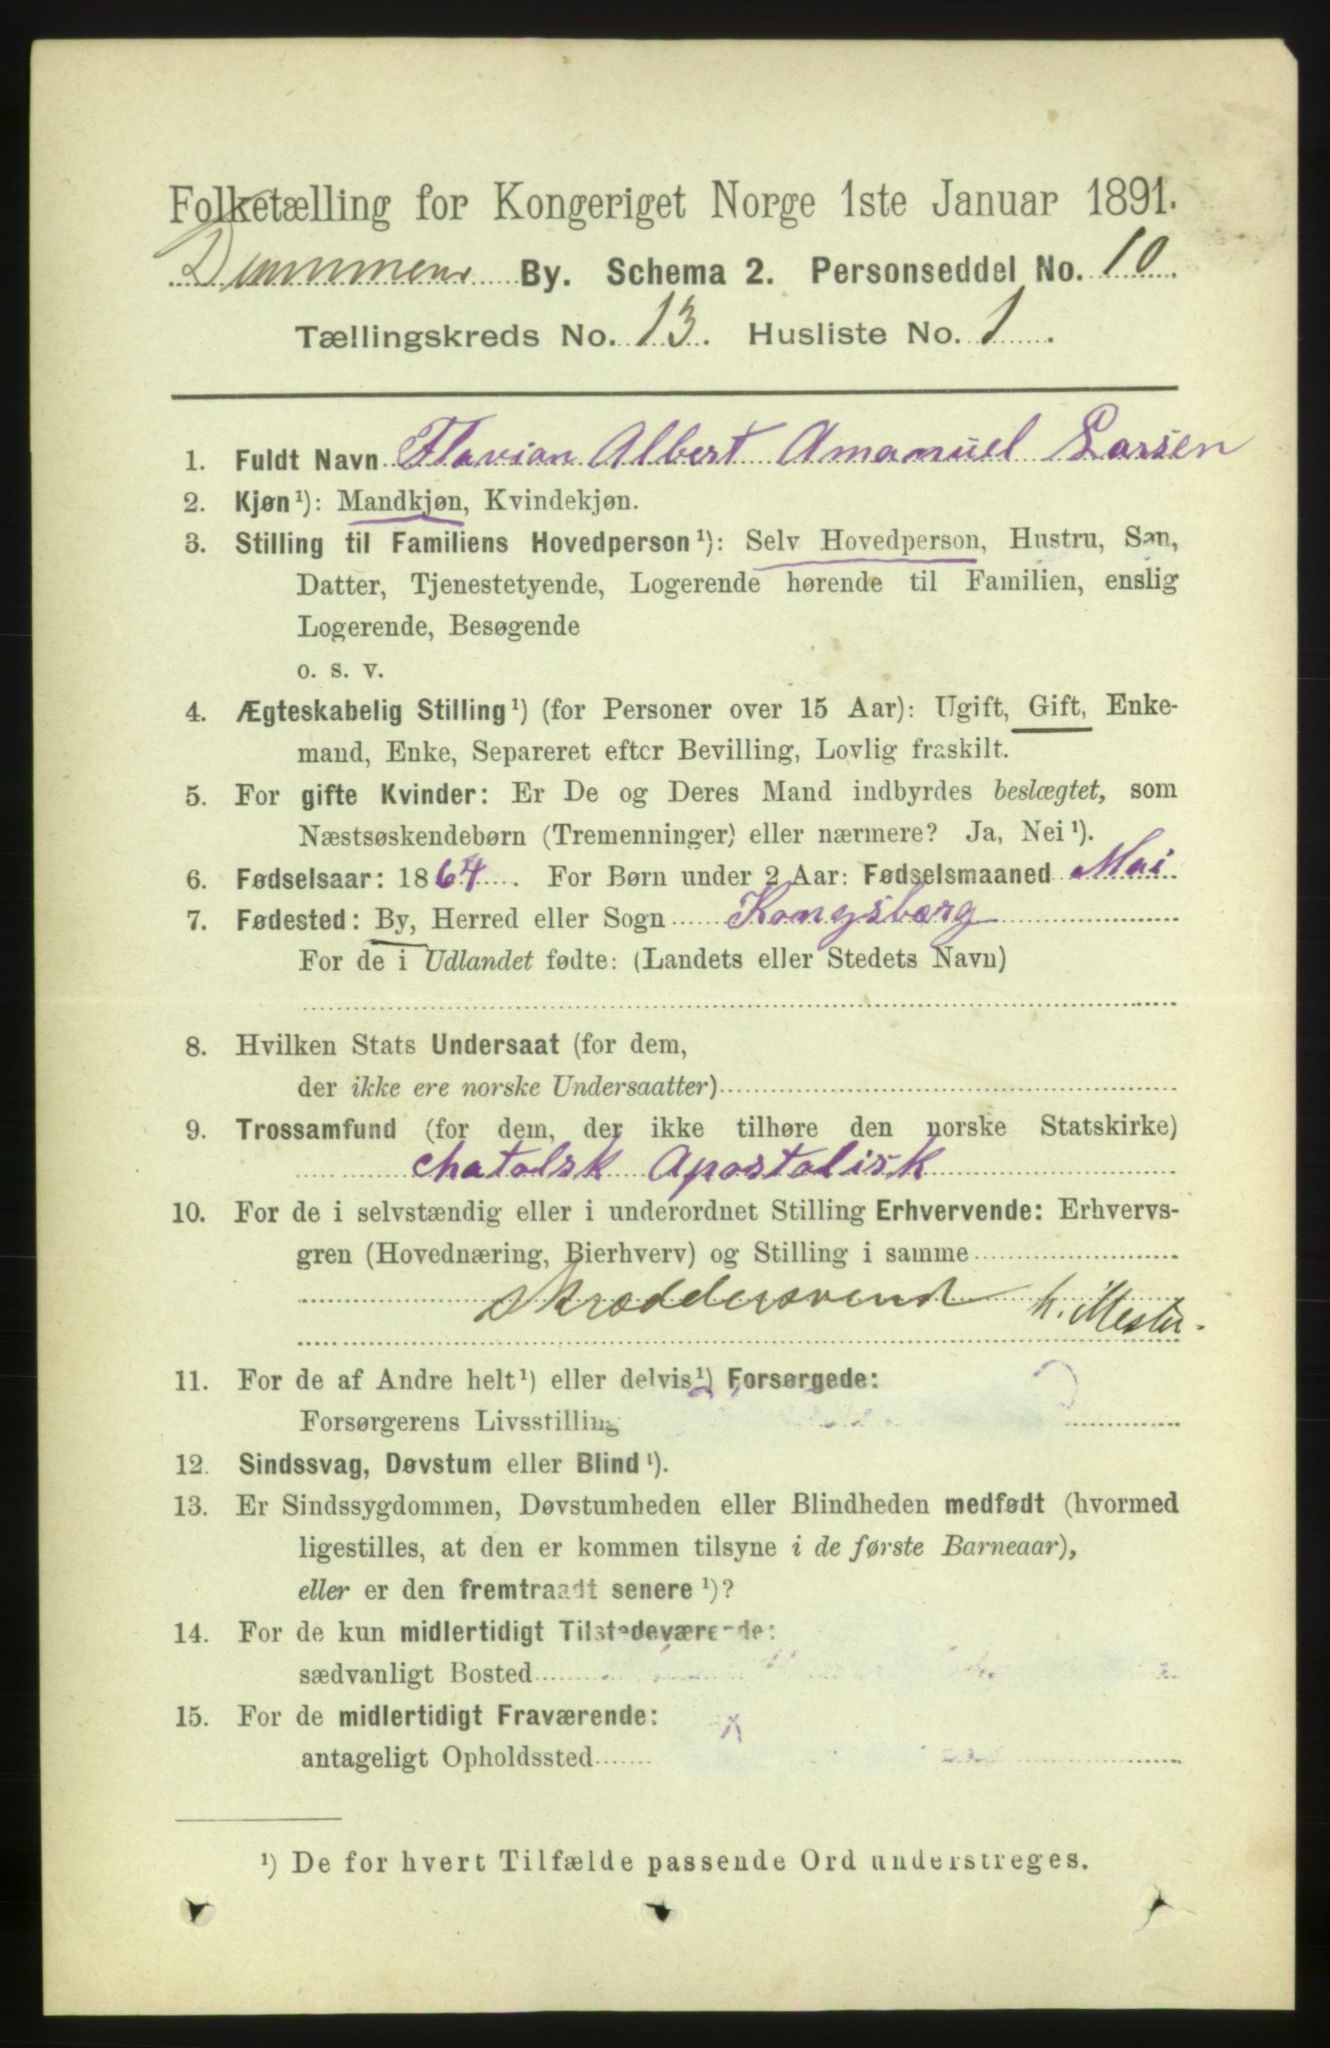 Folketælling for Kongeriget Norge 1ste Januar 1891.
Drammens By. Schema 2. Personseddel No. 10
Tællingskreds No. 13. Husliste No. 1.
1. Fuldt Navn Flavian Albert Amanuel Larsen
2. Kjøn¹): Mandkjøn, Kvindekjøn.
3. Stilling til Familiens Hovedperson¹): Selv Hovedperson, Hustru, Søn,
Datter, Tjenestetyende, Logerende hørende til Familien, enslig
Logerende, Besøgende
o. s. v.
4. Ægteskabelig Stilling¹) (for Personer over 15 Aar): Ugift, Gift, Enke-
mand, Enke, Separeret efter Bevilling, Lovlig fraskilt.
5. For gifte Kvinder: Er De og Deres Mand indbyrdes beslægtet, som
Næstsøskendebørn (Tremenninger) eller nærmere? Ja, Nei¹).
6. Fødselsaar: 1864. For Børn under 2 Aar: Fødselsmaaned Mai
7. Fødested: By, Herred eller Sogn Kongsberg
For de i Udlandet fødte: (Landets eller Stedets Navn)
8. Hvilken Stats Undersaat (for dem,
der ikke ere norske Undersaatter)
9. Trossamfund (for dem, der ikke tilhøre den norske Statskirke)
chatolsk Apostolisk
10. For de i selvstændig eller i underordnet Stilling Erhvervende: Erhvervs-
gren (Hovednæring, Bierhverv) og Stilling i samme
Skræddersvend h. Mester.
11. For de af Andre helt¹) eller delvis¹) Forsørgede:
Forsørgerens Livsstilling
12. Sindssvag, Døvstum eller Blind¹).
13. Er Sindssygdommen, Døvstumheden eller Blindheden medfødt (hvormed
ligestilles, at den er kommen tilsyne i de første Barneaar),
eller er den fremtraadt senere¹)?
14. For de kun midlertidigt Tilstedeværende:
sædvanligt Bosted
15. For de midlertidigt Fraværende:
antageligt Opholdssted
¹) De for hvert Tilfælde passende Ord understreges.